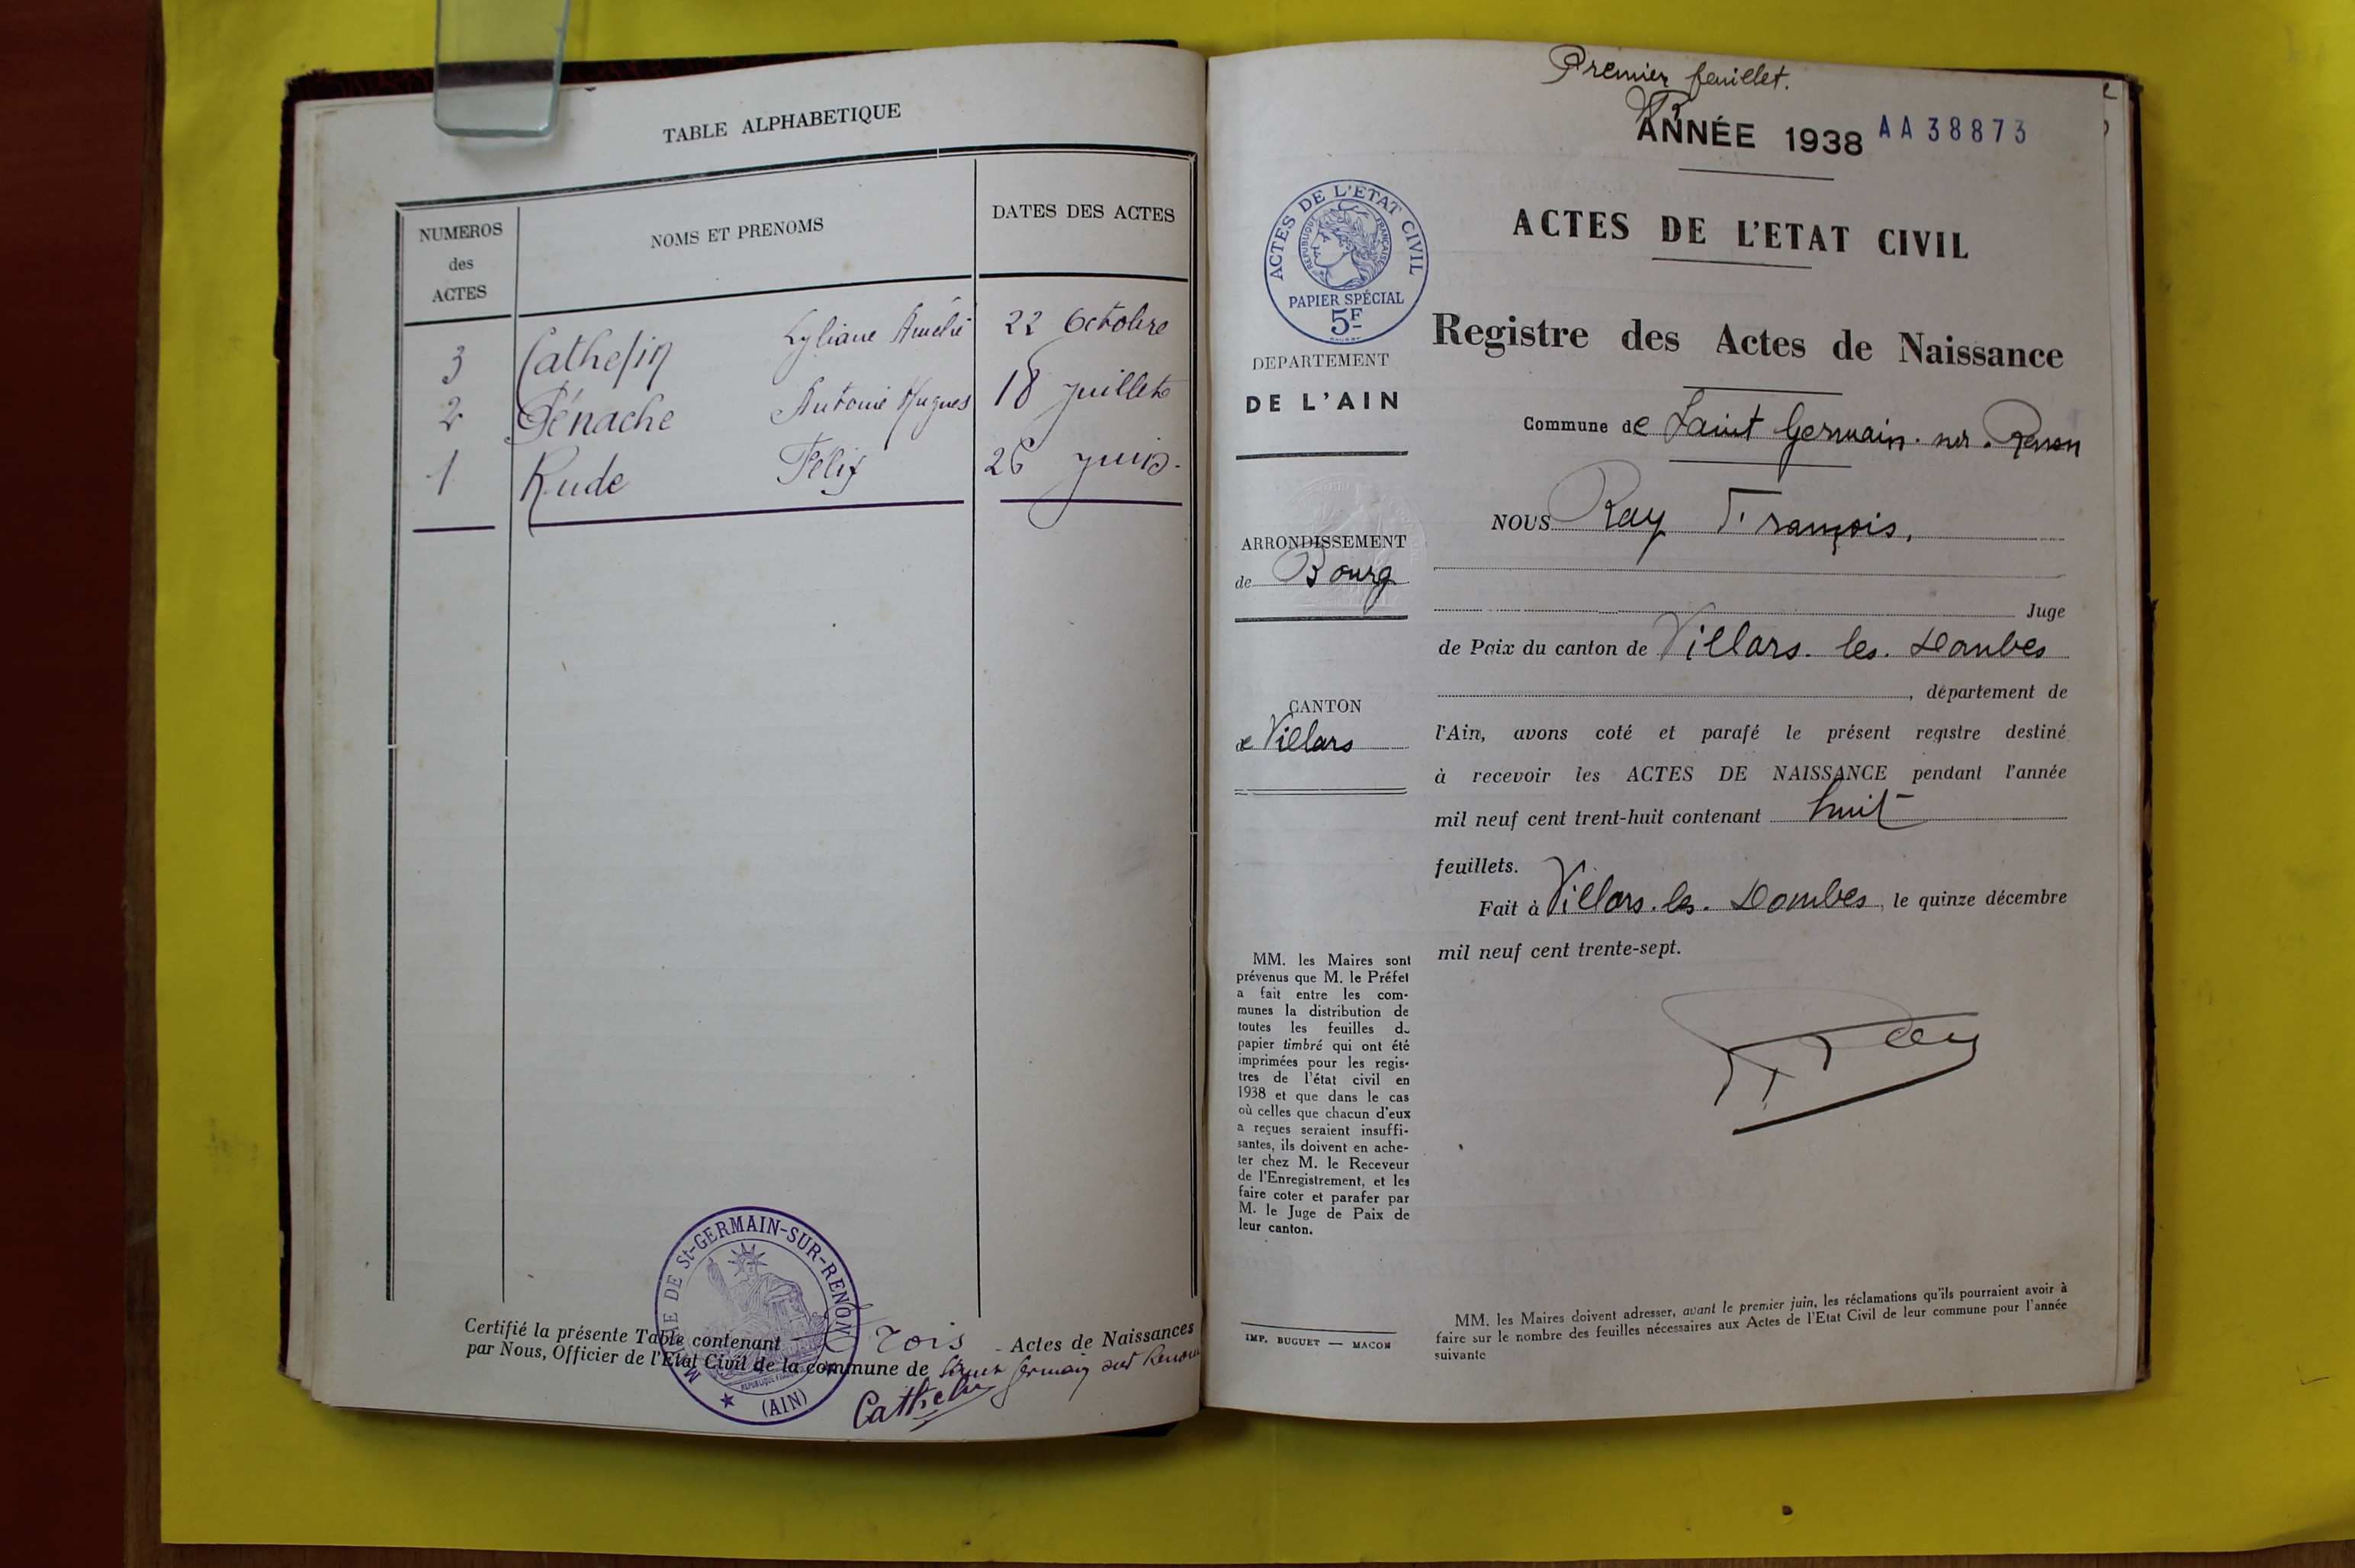 TABLE ALPHABETIQUE
NUMEROS
des
ACTES
NOMS ET PRENOMS
DATES DES ACTES
3 Cathelin Lyliane Amélie 22 Octobre
2 Pénache Antoine Hugues 18 juillet
1 Rude Félix 26 juin.
Certifié la présente Table contenant trois Actes de Naissances
par Nous, Officier de l'Etat Civil de la commune de Saint Germain sur Renon
Cathelin
MAIRIE DE St-GERMAIN-SUR-RENON
(AIN)
Premier feuillet.
ANNÉE 1938 AA38873
ACTES DE L'ETAT CIVIL
REPUBLIQUE FRANÇAISE
PAPIER SPÉCIAL
5F
DEPARTEMENT
DE L'AIN
ARRONDISSEMENT
de Bourg
CANTON
de Villars
MM. les Maires sont
prévenus que M. le Préfet
a fait entre les com-
munes la distribution de
toutes les feuilles de
papier timbré qui ont été
imprimées pour les regis-
tres de l'état civil en
1938 et que dans le cas
où celles que chacun d'eux
a reçues seraient insuffi-
santes, ils doivent en ache-
ter chez M. le Receveur
de l'Enregistrement, et les
faire coter et parafer par
M. le Juge de Paix de
leur canton.
IMP. BUGUET — MACON
ACTES DE L'ETAT CIVIL
Registre des Actes de Naissance
Commune de Saint Germain. sur. Renon
NOUS Ray François,
Juge
de Paix du canton de Villars. les. Dombes
, département de
l'Ain, avons coté et parafé le présent registre destiné
à recevoir les ACTES DE NAISSANCE pendant l'année
mil neuf cent trent-huit contenant huit
feuillets.
Fait à Villars. les. Dombes, le quinze décembre
mil neuf cent trente-sept.
Ray
MM. les Maires doivent adresser, avant le premier juin, les réclamations qu'ils pourraient avoir à
faire sur le nombre des feuilles nécessaires aux Actes de l'Etat Civil de leur commune pour l'année
suivante